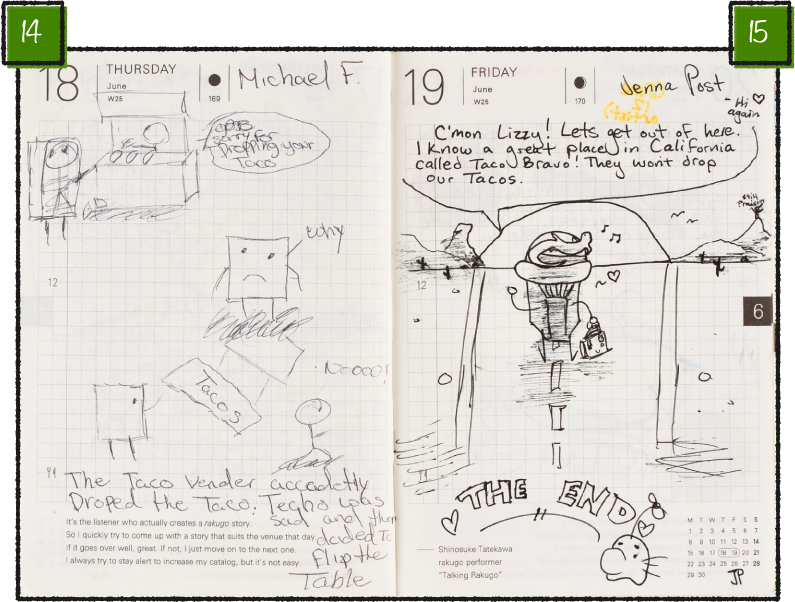 14
18
THURSDAY
June
W25
169
Michael F.
OOPS
Sorry for
Dropping your
Taco
why
12
Tacos
Noooo!
The Taco Vender accadetly
Droped the Taco. Techo was
sad and then
decided to
flip the
Table
It's the listener who actually creates a rakugo story.
So I quickly try to come up with a story that suits the venue that day.
If it goes over well, great. If not, I just move on to the next one.
I always try to stay alert to increase my catalog, but it's not easy.
15
19
FRIDAY
June
W25
170
Jenna Post
- Hi ♡
again
C'mon Lizzy! Lets get out of here.
I Know a great place in California
called Taco Bravo! They wont drop
our Tacos.
still
12
6
THE END
Shinosuke Tatekawa
rakugo performer
"Talking Rakugo"
M T W T F S S
1 2 3 4 5 6 7
8 9 10 11 12 13 14
15 16 17 18 19 20 21
22 23 24 25 26 27 28
29 30
JP